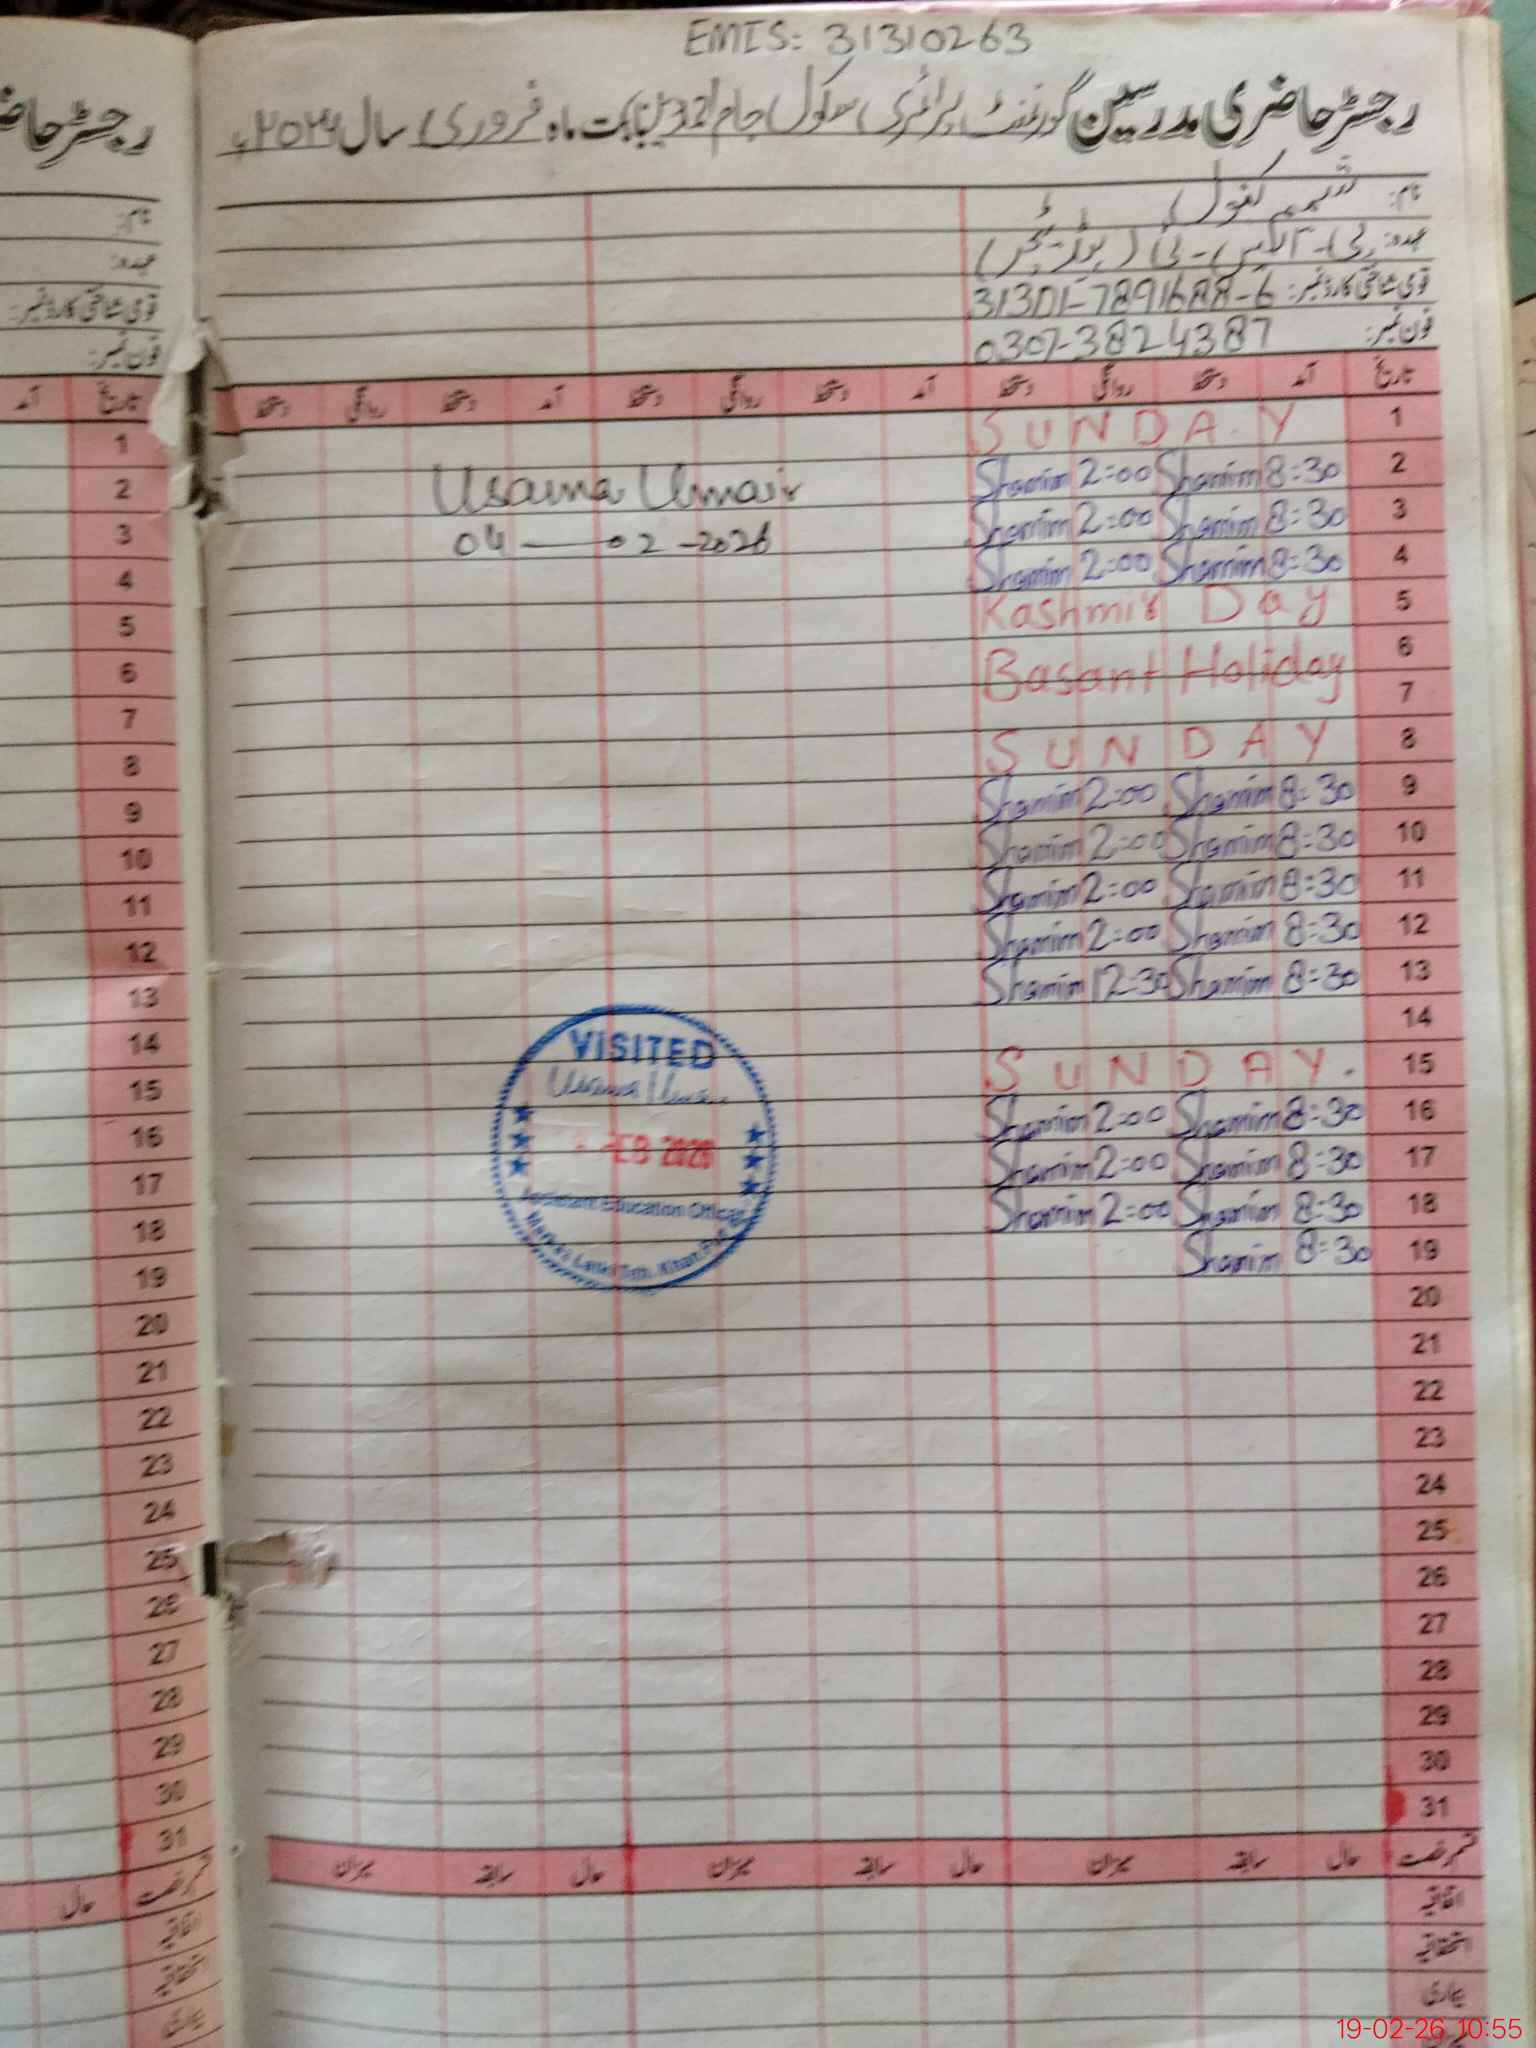 EMIS: 31310263
رجسٹر حاضری مدرسین گورنمنٹ پرائمری سکول جام بابت ماہ فروری سال
نام: شمیم کنول
عہدہ:
قومی شناختی کارڈ نمبر: 31301-7891688-6
فون نمبر: 0307-3824387
تاریخ آمد دستخط روانگی دستخط آمد دستخط روانگی دستخط آمد دستخط روانگی دستخط
1 SUNDAY
2 Shamim 2:00 Shamim 8:30
Usama Umair
3 Shamim 2:00 Shamim 8:30
04 — 02 - 2026
4 Shamim 2:00 Shamim 8:30
5 Kashmir Day
6 Basant Holiday
7
8 SUNDAY
9 Shamim 2:00 Shamim 8:30
10 Shamim 2:00 Shamim 8:30
11 Shamim 2:00 Shamim 8:30
12 Shamim 2:00 Shamim 8:30
13 Shamim 12:30 Shamim 8:30
14
15 SUNDAY.
16 Shamim 2:00 Shamim 8:30
17 Shamim 2:00 Shamim 8:30
18 Shamim 2:00 Shamim 8:30
19 Shamim 8:30
20
21
22
23
24
25
26
27
28
29
30
31
VISITED
Usama Umair
FEB 2026
Assistant Education Officer
قسم رخصت حال سابقہ میزان حال سابقہ میزان حال سابقہ میزان
اتفاقیہ
استحقاقیہ
بیماری
رجسٹر
نام:
عہدہ:
قومی شناختی کارڈ نمبر:
فون نمبر:
تاریخ آمد
1
2
3
4
5
6
7
8
9
10
11
12
13
14
15
16
17
18
19
20
21
22
23
24
25
26
27
28
29
30
31
قسم رخصت حال
اتفاقیہ
استحقاقیہ
بیماری
19-02-26 10:55